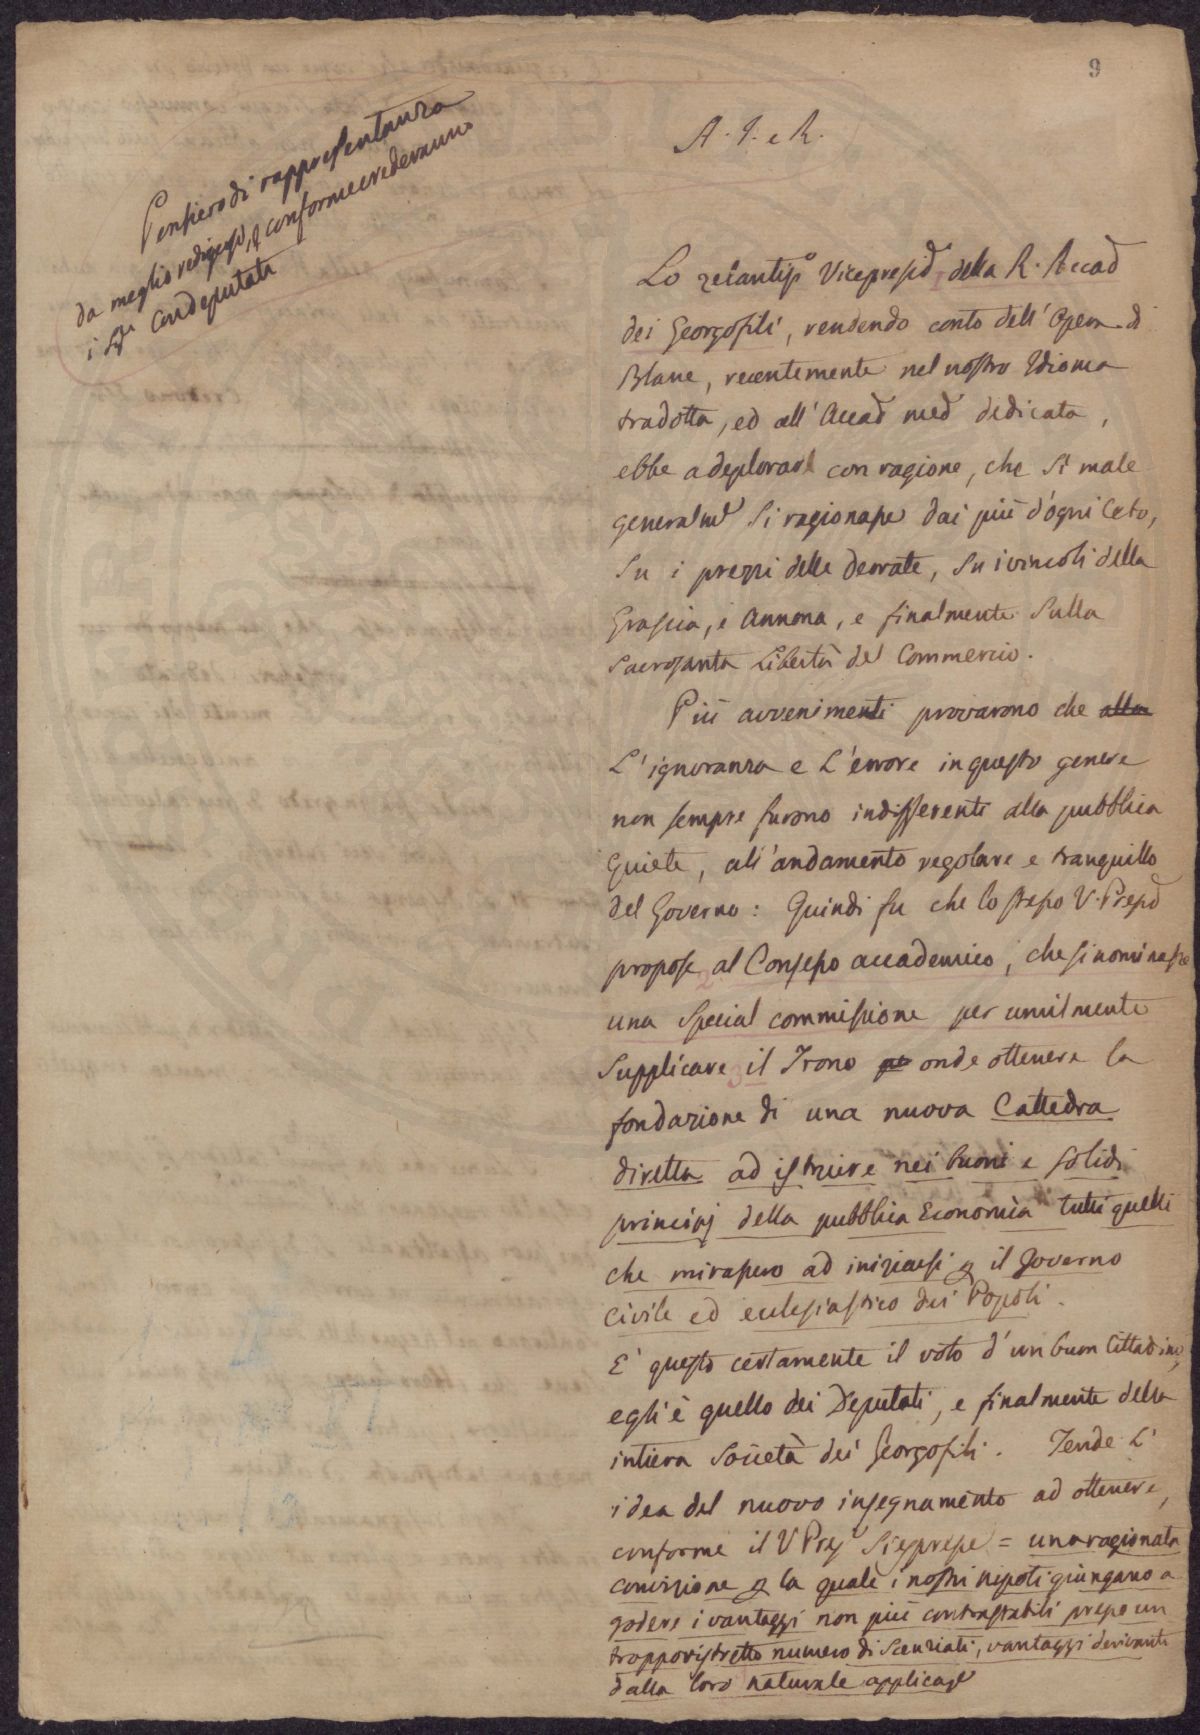 9
A. I. e R.
Pensiero di rappresentanza
da meglio redigersi, conforme crederanno
i Sri Condeputati
Lo zelantiso Vicepresid della R. Accad
dei Georgofili, rendendo conto dell' Opera di
Blane, recentemente nel nostro Idioma
tradotta, ed all' Accad med dedicata,
ebbe a deplorare con ragione, che sì male
generalme si ragionasse dai più d'ogni Ceto,
su i prezzi delle derrate, su i vincoli della
Grascia, e Annona, e finalmente sulla
sacrosanta Libertà del Commercio.
Più avvenimenti provarono che alla
L'ignoranza e L'errore in questo genere
non sempre furono indifferenti alla pubblica
Quiete, all'andamento regolare e tranquillo
del Governo: Quindi fu che lo stesso V. Presid
propose al Consesso accademico, che si nominasse
2
una special commissione per umilmente
supplicare il Trono pe onde ottenere la
3
fondazione di una nuova Cattedra
diretta ad istruire nei buoni e solidi
principj della pubblica Economia tutti quelli
che mirassero ad iniziarsi p il Governo
civile ed ecclesiastico dei Popoli.
E' questo certamente il voto d'un buon Cittadino,
egli è quello dei Deputati, e finalmente della
intiera Società dei Georgofili. Tende L'
idea del nuovo insegnamento ad ottenere,
conforme il V Pres si espresse = una ragionata
convizione p la quale i nostri nipoti giungano a
godere i vantaggi non più contrastabili presso un
troppo ristretto numero di Scenziati, vantaggi derivanti
dalla loro naturale applicaze